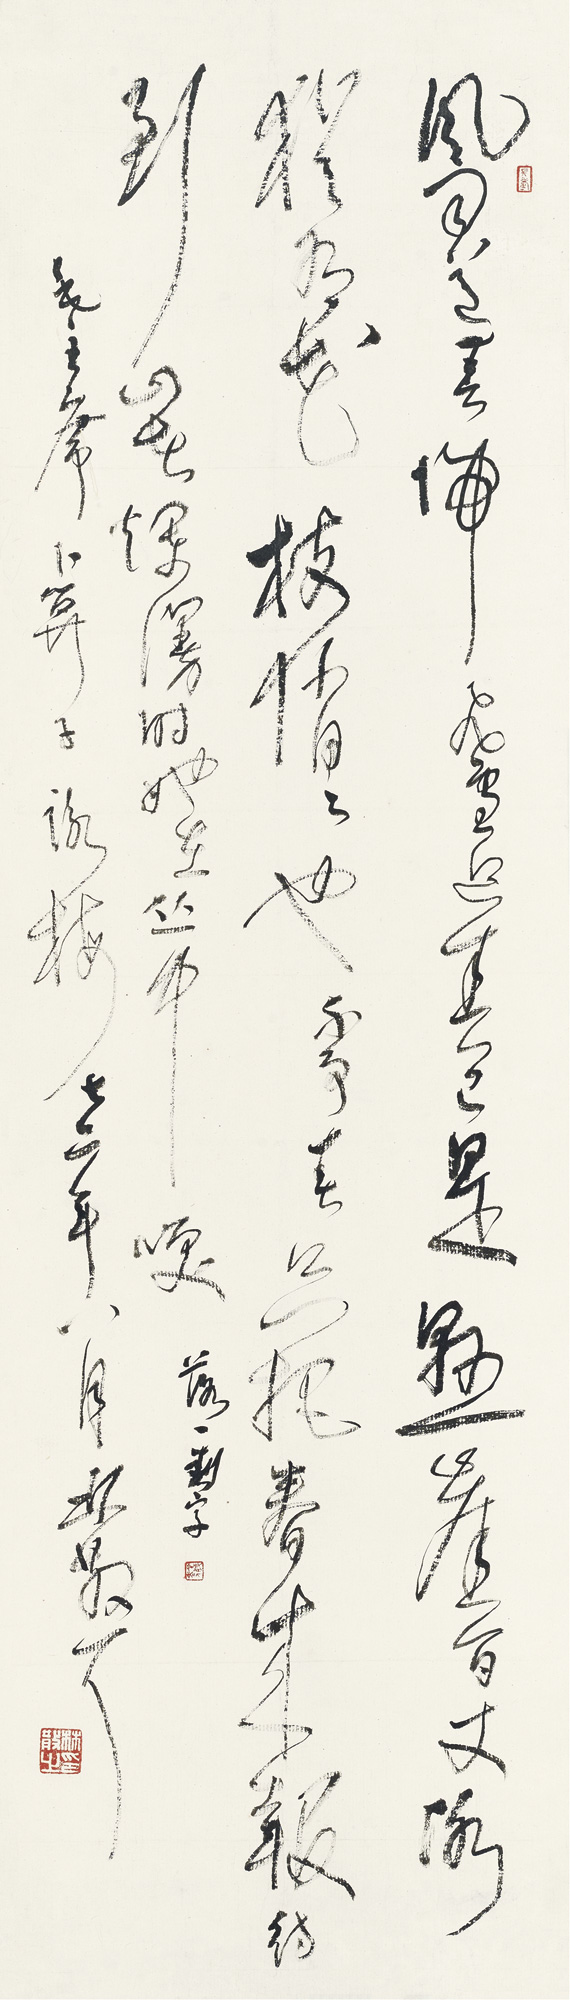 風雨送春歸飛雪迎春已是懸崖百丈冰
猶有花枝俏々也不爭春只把春來報待
到山花爛漫時她在丛中笑
落一到字
毛主席卜算子詠梅七二年八月林散耳
林散之印